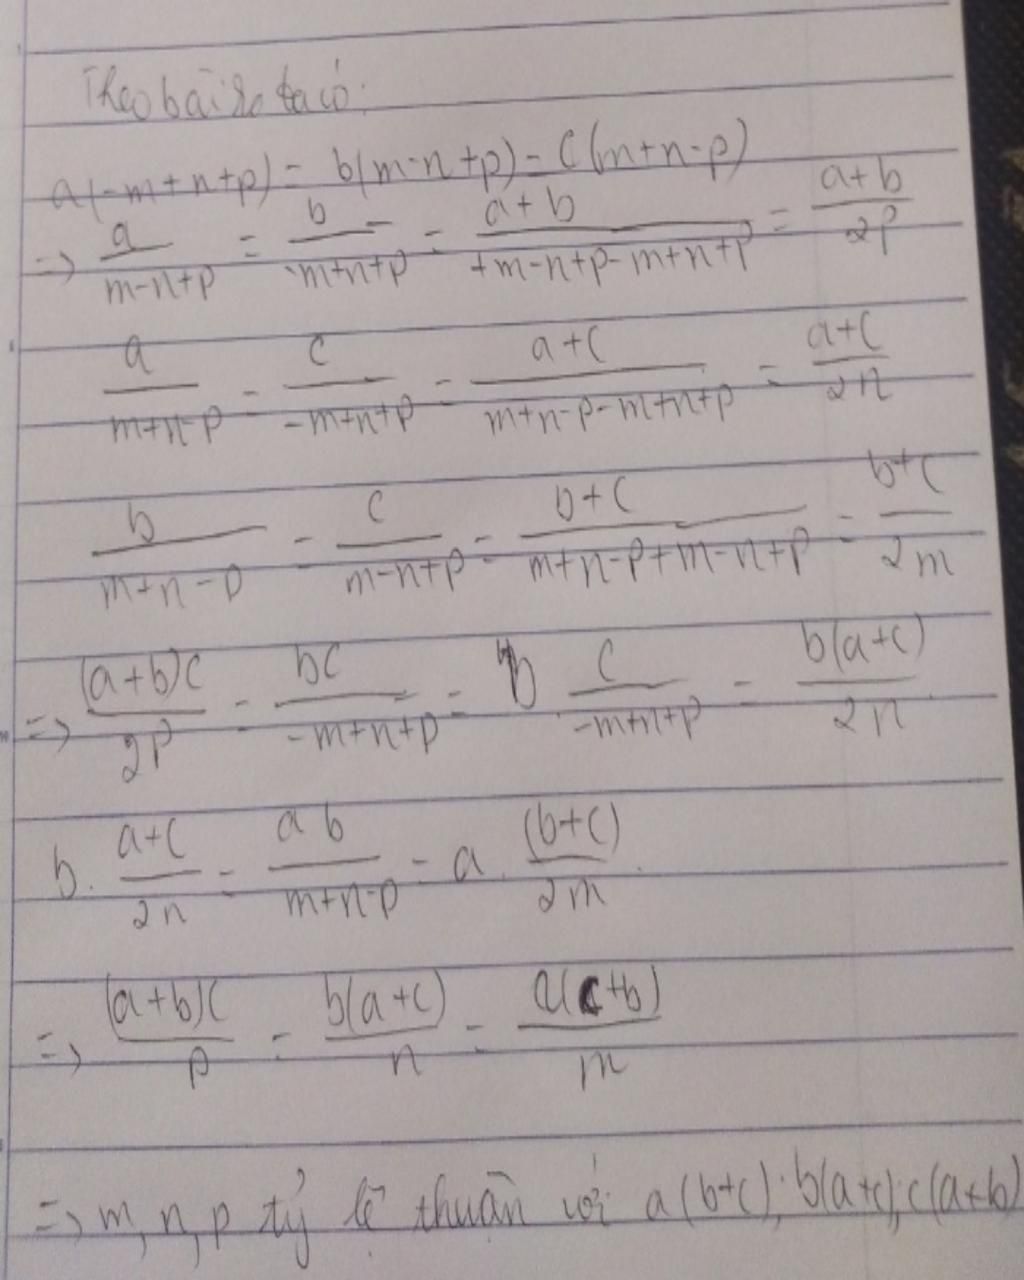 Theo bài ra ta có:
a(-m+n+p) = b(m-n+p) = c(m+n-p)
=> a/(m-n+p) = b/(-m+n+p) = (a+b)/(+m-n+p-m+n+p) = (a+b)/2p
a/(m+n-p) = c/(-m+n+p) = (a+c)/(m+n-p-m+n+p) = (a+c)/2n
b/(m+n-p) = c/(m-n+p) = (b+c)/(m+n-p+m-n+p) = (b+c)/2m
=> (a+b)c/2p = bc/(-m+n+p) = b c/(-m+n+p) = b(a+c)/2n
b. (a+c)/2n = ab/(m+n-p) = a. (b+c)/2m.
=> (a+b)c/p = b(a+c)/n = a(c+b)/m
=> m, n, p tỷ lệ thuận với a(b+c); b(a+c); c(a+b)